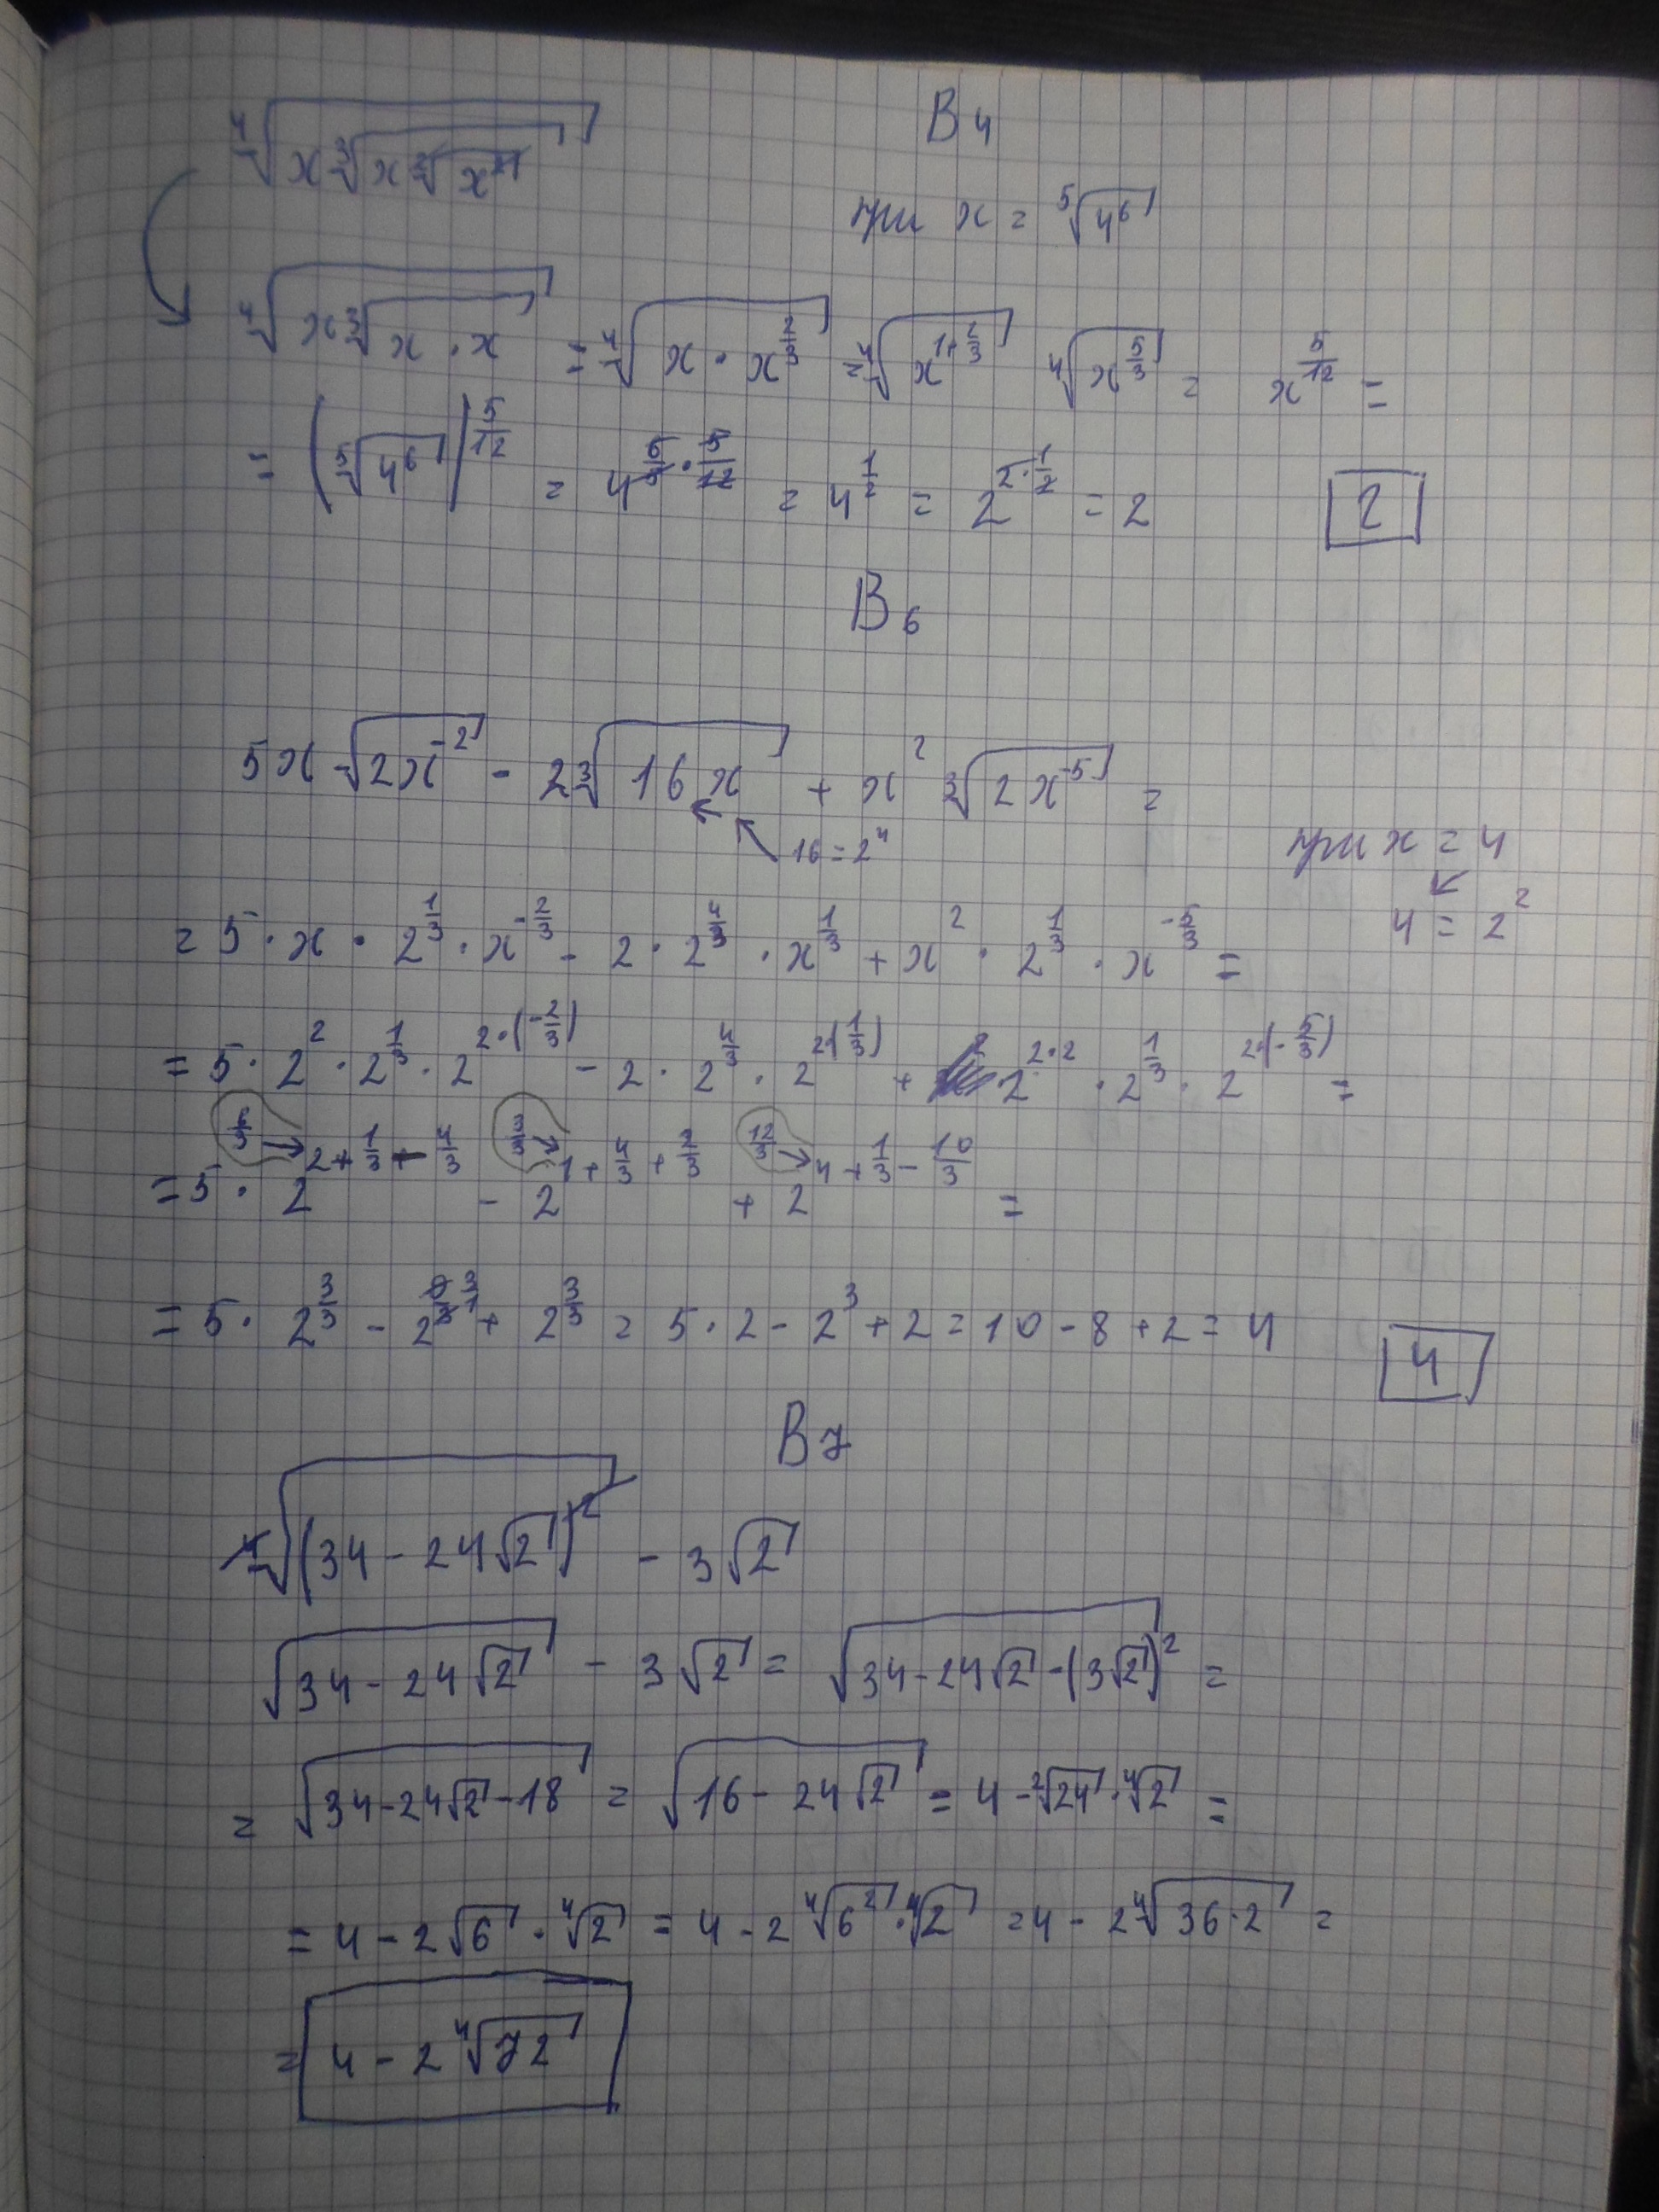 B4
⁴√(x ³√(x ²√(x²)))
при x = ⁵√(4⁶)
⁴√(x ³√(x · x)) = ⁴√(x · x^(2/3)) = ⁴√(x^(1+2/3)) ⁴√(x^(5/3)) = x^(5/12) =
= (⁵√(4⁶))^(5/12) = 4^(6/5 · 5/12) = 4^(1/2) = 2^(2·1/2) = 2
2
B6
5x √(2x⁻²) - 2 ³√(16x) + x² ³√(2x⁻⁵) =
16 = 2⁴
при x = 4
4 = 2²
= 5 · x · 2^(1/3) · x^(-2/3) - 2 · 2^(4/3) · x^(1/3) + x² · 2^(1/3) · x^(-5/3) =
= 5 · 2² · 2^(1/3) · 2^(2·(-2/3)) - 2 · 2^(4/3) · 2^(2·(1/3)) + 2^(2·2) · 2^(1/3) · 2^(2·(-5/3)) =
6/3 → 3/3 → 12/3 →
= 5 · 2^(2+1/3-4/3) - 2^(1+4/3+2/3) + 2^(4+1/3-10/3) =
= 5 · 2^(3/3) - 2^(9/3 3/1) + 2^(3/3) = 5 · 2 - 2³ + 2 = 10 - 8 + 2 = 4
4
B7
⁴√((34 - 24√2)²) - 3√2
√(34 - 24√2) - 3√2 = √(34 - 24√2 - (3√2)²) =
= √(34 - 24√2 - 18) = √(16 - 24√2) = 4 - ²√24 · ⁴√2 =
= 4 - 2√6 · ⁴√2 = 4 - 2 ⁴√(6²) · ⁴√2 = 4 - 2 ⁴√(36·2) =
= 4 - 2 ⁴√72